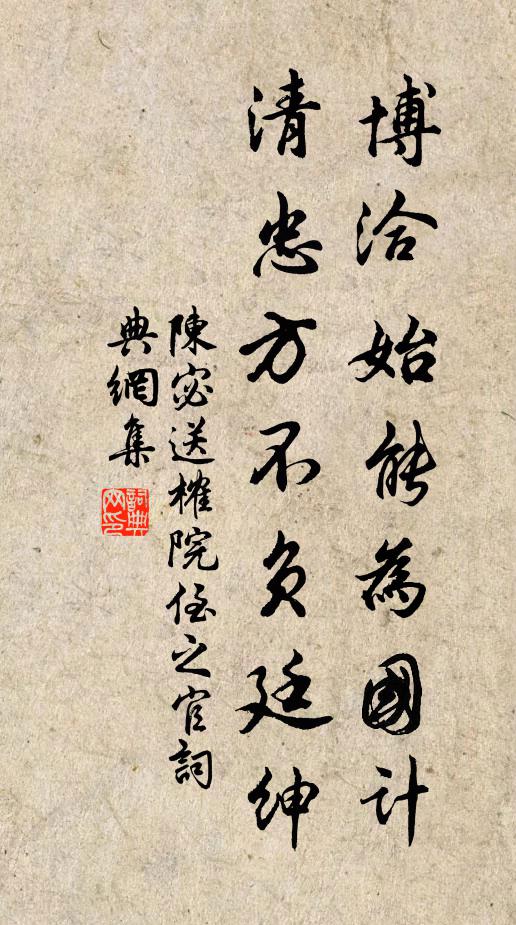 博洽始能為國計
清忠方不負廷紳
陳宓送榷院侄之官詞
典網集
詞典网印